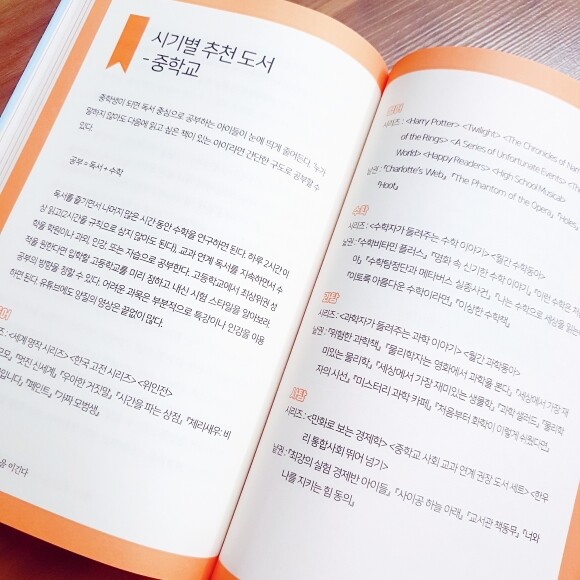 시기별 추천 도서
- 중학교
중학생이 되면 독서 중심으로 공부하는 아이들이 눈에 띄게 줄어든다. '누가
말하지 않아도 다음에 읽고 싶은 책이 있는 아이'라면 간단한 구도로 공부할 수
있다.
공부 = 독서 + 수학
독서를 즐기면서 나머지 많은 시간 동안 수학을 연구하면 된다. 하루 2시간 이
상 읽고(2시간을 규칙으로 삼지 않아도 된다), 교과 연계 독서를 지속하면서 수
학을 학원이나 과외, 인강, 또는 자습으로 공부한다. 고등학교에서 최상위권 성
적을 원한다면 입학할 고등학교를 미리 정하고 내신 시험 스타일을 알아보라.
공부의 방향을 정할 수 있다. 어려운 과목은 부분적으로 특강이나 인강을 이용
하면 된다. 유튜브에도 양질의 영상은 끝없이 많다.
시리즈 : <세계 명작 시리즈> <한국 고전 시리즈> <위인전>
모모』, 『멋진 신세계』, 『우아한 거짓말』, 『시간을 파는 상점』, 『체리새우: 비
입니다』, 『페인트』, 『가짜 모범생』
을 이긴다
시리즈 : <Harry Potter> <Twilight> <The Chronicles of Narn
of the Rings> <A Series of Unfortunate Events> <The
World> <Happy Readers> <High School Musical>
낱권 : 『Charlotte's Web』, 『The Phantom of the Opera』, 『Holes』,
『Hoot』
수학
시리즈 : <수학자가 들려주는 수학 이야기> <월간 수학동아>
낱권 : 『수학비타민 플러스』, 『영화 속 신기한 수학 이야기』, 『이런 수학은 처
야』, 『수학탐정단과 메타버스 실종사건』, 『나는 수학으로 세상을 읽는
『이토록 아름다운 수학이라면』, 『이상한 수학책』
과학
시리즈 : <과학자가 들려주는 과학 이야기> <월간 과학동아>
낱권 : 『위험한 과학책』, 『물리학자는 영화에서 과학을 본다』, 『세상에서 가장 재
미있는 물리학』, 『세상에서 가장 재미있는 생물학』, 『과학 셀러드』, 『물리학
자의 시선』, 『미스터리 과학 카페』, 『처음부터 화학이 이렇게 쉬웠다면』
사회
시리즈 : <만화로 보는 경제학> <중학교 사회 교과 연계 권장 도서 세트> <한우
리 통합사회 뛰어 넘기>
낱권 : 『최강의 실험 경제반 아이들』, 『사이공 하늘 아래』, 『교서관 책동무』, 『너와
나를 지키는 힘 동의』